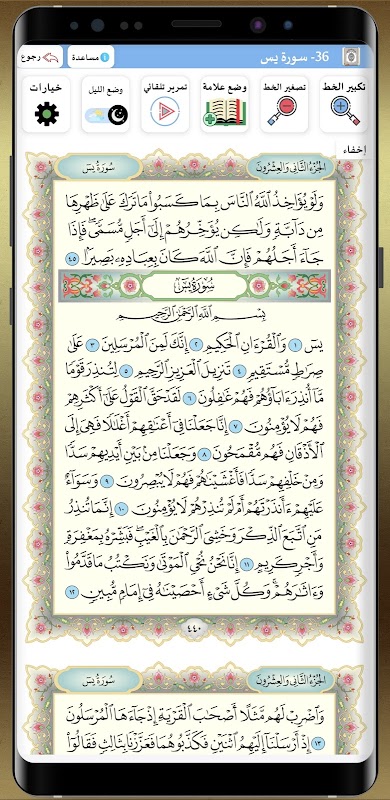 36- سورة يس
مساعدة
رجوع
تكبير الخط
تصغير الخط
وضع علامة
تمرير تلقائي
وضع الليل
خيارات
إخفاء
الجزء الثاني والعشرون
سورة يس
وَلَوْ يُؤَاخِذُ ٱللَّهُ ٱلنَّاسَ بِمَا كَسَبُوا۟ مَا تَرَكَ عَلَىٰ ظَهْرِهَا
مِن دَآبَّةٍ وَلَـٰكِن يُؤَخِّرُهُمْ إِلَىٰٓ أَجَلٍ مُّسَمًّى ۖ فَإِذَا
جَآءَ أَجَلُهُمْ فَإِنَّ ٱللَّهَ كَانَ بِعِبَادِهِۦ بَصِيرًۢا ٤٥
سورة يس
بِسْمِ ٱللَّهِ ٱلرَّحْمَـٰنِ ٱلرَّحِيمِ
يسٓ ١ وَٱلْقُرْءَانِ ٱلْحَكِيمِ ٢ إِنَّكَ لَمِنَ ٱلْمُرْسَلِينَ ٣ عَلَىٰ
صِرَٰطٍ مُّسْتَقِيمٍ ٤ تَنزِيلَ ٱلْعَزِيزِ ٱلرَّحِيمِ ٥ لِتُنذِرَ قَوْمًا
مَّآ أُنذِرَ ءَابَآؤُهُمْ فَهُمْ غَـٰفِلُونَ ٦ لَقَدْ حَقَّ ٱلْقَوْلُ عَلَىٰٓ أَكْثَرِهِمْ
فَهُمْ لَا يُؤْمِنُونَ ٧ إِنَّا جَعَلْنَا فِىٓ أَعْنَـٰقِهِمْ أَغْلَـٰلًا فَهِىَ إِلَى
ٱلْأَذْقَانِ فَهُم مُّقْمَحُونَ ٨ وَجَعَلْنَا مِنۢ بَيْنِ أَيْدِيهِمْ سَدًّا
وَمِنْ خَلْفِهِمْ سَدًّا فَأَغْشَيْنَـٰهُمْ فَهُمْ لَا يُبْصِرُونَ ٩ وَسَوَآءٌ
عَلَيْهِمْ ءَأَنذَرْتَهُمْ أَمْ لَمْ تُنذِرْهُمْ لَا يُؤْمِنُونَ ١٠ إِنَّمَا تُنذِرُ
مَنِ ٱتَّبَعَ ٱلذِّكْرَ وَخَشِىَ ٱلرَّحْمَـٰنَ بِٱلْغَيْبِ ۖ فَبَشِّرْهُ بِمَغْفِرَةٍ
وَأَجْرٍ كَرِيمٍ ١١ إِنَّا نَحْنُ نُحْىِ ٱلْمَوْتَىٰ وَنَكْتُبُ مَا قَدَّمُوا۟
وَءَاثَـٰرَهُمْ ۚ وَكُلَّ شَىْءٍ أَحْصَيْنَـٰهُ فِىٓ إِمَامٍ مُّبِينٍ ١٢
٤٤٠
الجزء الثاني والعشرون
سورة يس
وَٱضْرِبْ لَهُم مَّثَلًا أَصْحَـٰبَ ٱلْقَرْيَةِ إِذْ جَآءَهَا ٱلْمُرْسَلُونَ
١٣ إِذْ أَرْسَلْنَآ إِلَيْهِمُ ٱثْنَيْنِ فَكَذَّبُوهُمَا فَعَزَّزْنَا بِثَالِثٍ فَقَالُوٓا۟